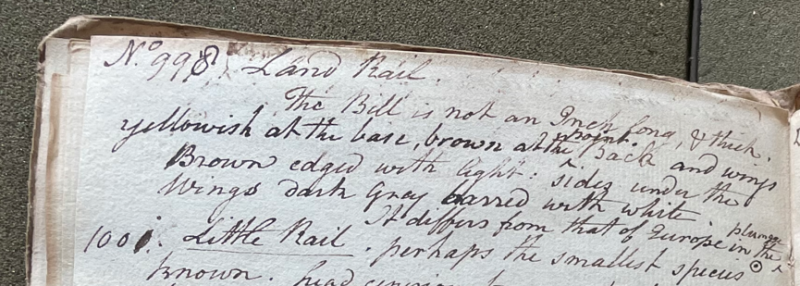 No. 998. Land Rail.
The Bill is not an Inch long, & thick.
yellowish at the base, brown at the point. Back and wings
Brown edged with light: sides under the
Wings dark Grey barred with white. plumage
It differs from that of Europe in the
1001. Little Rail. perhaps the smallest species
known. head